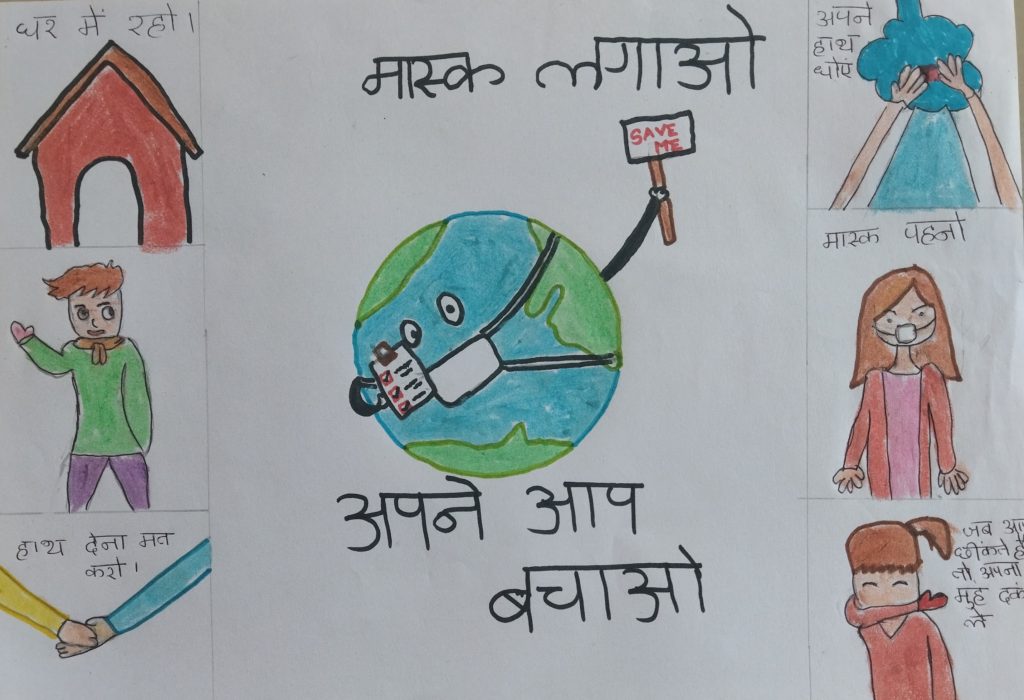 घर में रहो।
हाथ देना मत
करो।
मास्क लगाओ
SAVE
ME
अपने आप
बचाओ
अपने
हाथ
धोएं
मास्क पहनो
जब आप
छींकते हैं
तो अपना
मुह ढकं
ले